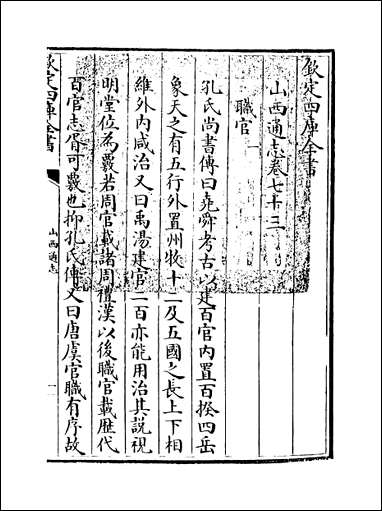 欽定四庫全書
山西通志卷七十三
職官一
孔氏尚書傳曰堯舜考古以建百官内置百揆四岳
象天之有五行外置州牧十二及五國之長上下相
維外内咸治又曰禹湯建官二百亦能用治其說視
明堂位為覈若周官載諸周禮漢以後職官載歴代
百官志胥可覈也抑孔氏傳又曰唐虞官職有序故
欽定四庫全書
山西通志
一